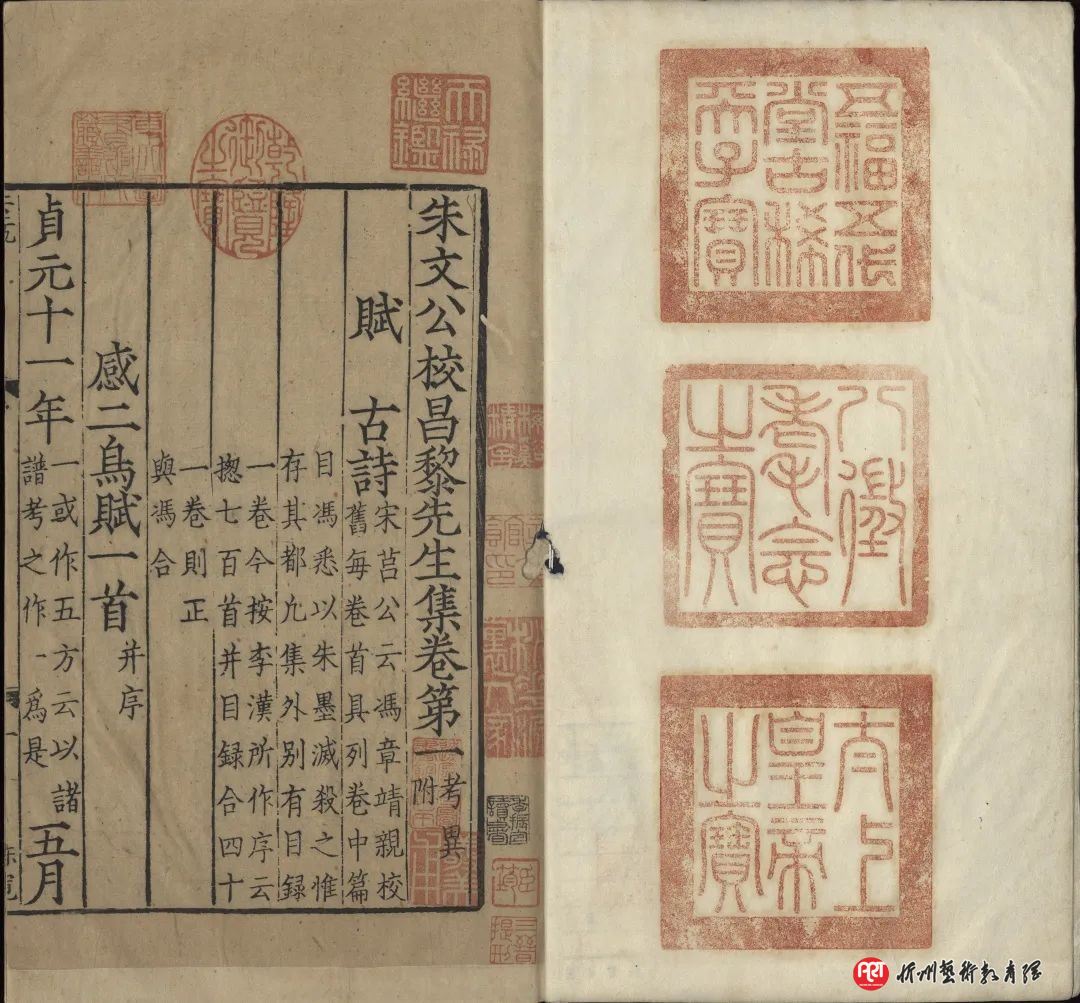 五福五代
堂古稀
天子寶
八徵
耄念
之寶
太上
皇帝
之寶
天祿
繼鑑
乾隆
御覽
之寶
朱文公校昌黎先生集卷第一
考異
附
賦 古詩
宋莒公云馮章靖親校
舊每卷首具列卷中篇
目馮悉以朱墨滅殺之惟
存其都凢集外别有目録
一卷今按李漢所作序云
揔七百首并目録合四十
一卷則正
與馮合
感二鳥賦一首 并序
貞元十一年
一或作五方云以諸
譜考之作一爲是
五月
ART 忻州藝術教育